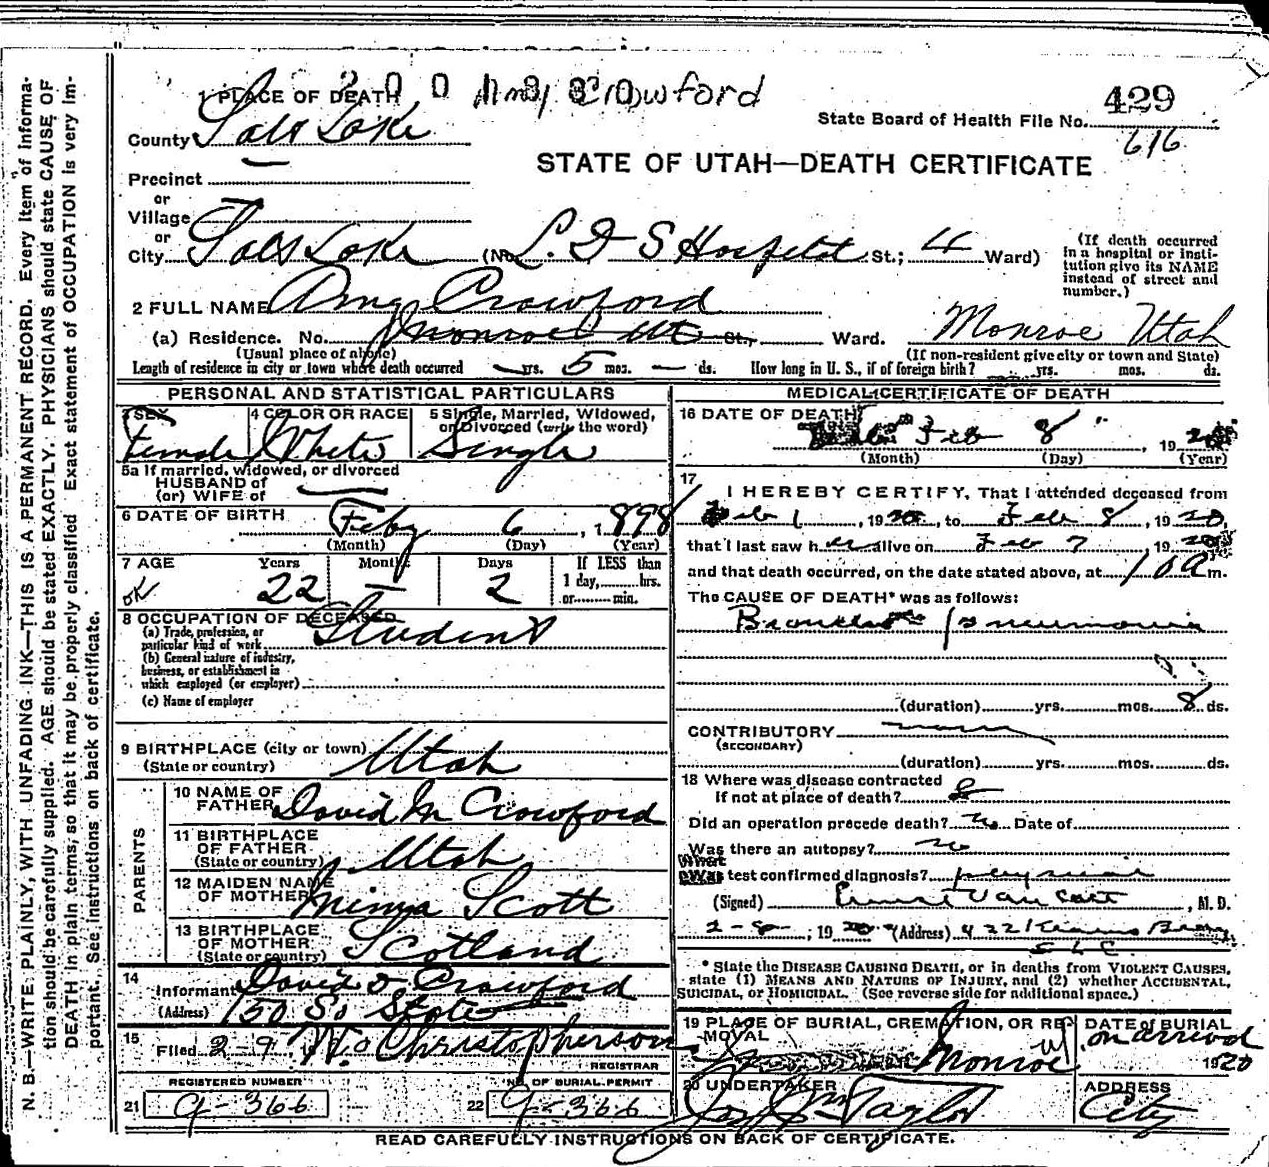 N. B.—WRITE PLAINLY, WITH UNFADING INK—THIS IS A PERMANENT RECORD. Every item of informa-
tion should be carefully supplied. AGE should be stated EXACTLY. PHYSICIANS should state CAUSE OF
DEATH in plain terms, so that it may be properly classified Exact statement of OCCUPATION is very im-
portant. See instructions on back of certificate.
1 PLACE OF DEATH
Amy Crawford
429
State Board of Health File No.
616
County Salt Lake
STATE OF UTAH—DEATH CERTIFICATE
Precinct
or
Village
or
City Salt Lake (No. L. D S Hospital St.; 4 Ward)
(If death occurred in a hospital or insti-
tution give its NAME instead of street and number.)
2 FULL NAME Amy Crawford
(a) Residence. No. Monroe Ut St., Ward. Monroe Utah
(Usual place of abode) (If non-resident give city or town and State)
Length of residence in city or town where death occurred — yrs. 5 mos. — ds. How long in U. S., if of foreign birth? yrs. mos. ds.
PERSONAL AND STATISTICAL PARTICULARS
3 SEX Female
4 COLOR OR RACE White
5 Single, Married, Widowed, or Divorced (write the word) Single
5a If married, widowed, or divorced
HUSBAND of
(or) WIFE of
6 DATE OF BIRTH Feby 6, 1898
(Month) (Day) (Year)
7 AGE Years Months Days If LESS than 1 day, hrs. or min.
OK 22 — 2
8 OCCUPATION OF DECEASED
(a) Trade, profession, or particular kind of work Student
(b) General nature of industry, business, or establishment in which employed (or employer)
(c) Name of employer
9 BIRTHPLACE (city or town)
(State or country) Utah
PARENTS
10 NAME OF FATHER David M Crawford
11 BIRTHPLACE OF FATHER (State or country) Utah
12 MAIDEN NAME OF MOTHER Scott
13 BIRTHPLACE OF MOTHER (State or country) Scotland
14 Informant David D Crawford
(Address) 150 So State
15 Filed 2-9, Christopherson
REGISTRAR
REGISTERED NUMBER
21 9-366
NO. OF BURIAL PERMIT
22 9-366
MEDICAL CERTIFICATE OF DEATH
16 DATE OF DEATH Feb 8 1920
(Month) (Day) (Year)
17
I HEREBY CERTIFY, That I attended deceased from
Feb 1, 1920, to Feb 8, 1920,
that I last saw her alive on Feb 7 1920
and that death occurred, on the date stated above, at 1 0 a m.
The CAUSE OF DEATH* was as follows:
pneumonia
(duration) yrs. mos. 8 ds.
CONTRIBUTORY none
(SECONDARY)
(duration) yrs. mos. ds.
18 Where was disease contracted
If not at place of death?
Did an operation precede death? No Date of
Was there an autopsy? no
What test confirmed diagnosis? physical
(Signed) , M. D.
2-8, 1920 (Address) 422 Kearns Bldg.
S L C
* State the DISEASE CAUSING DEATH, or in deaths from VIOLENT CAUSES,
state (1) MEANS AND NATURE OF INJURY, and (2) whether ACCIDENTAL,
SUICIDAL, or HOMICIDAL. (See reverse side for additional space.)
19 PLACE OF BURIAL, CREMATION, OR RE-
MOVAL
Monroe Ut.
DATE of BURIAL
on arrival
1920
20 UNDERTAKER
Taylor
ADDRESS
City
READ CAREFULLY INSTRUCTIONS ON BACK OF CERTIFICATE.